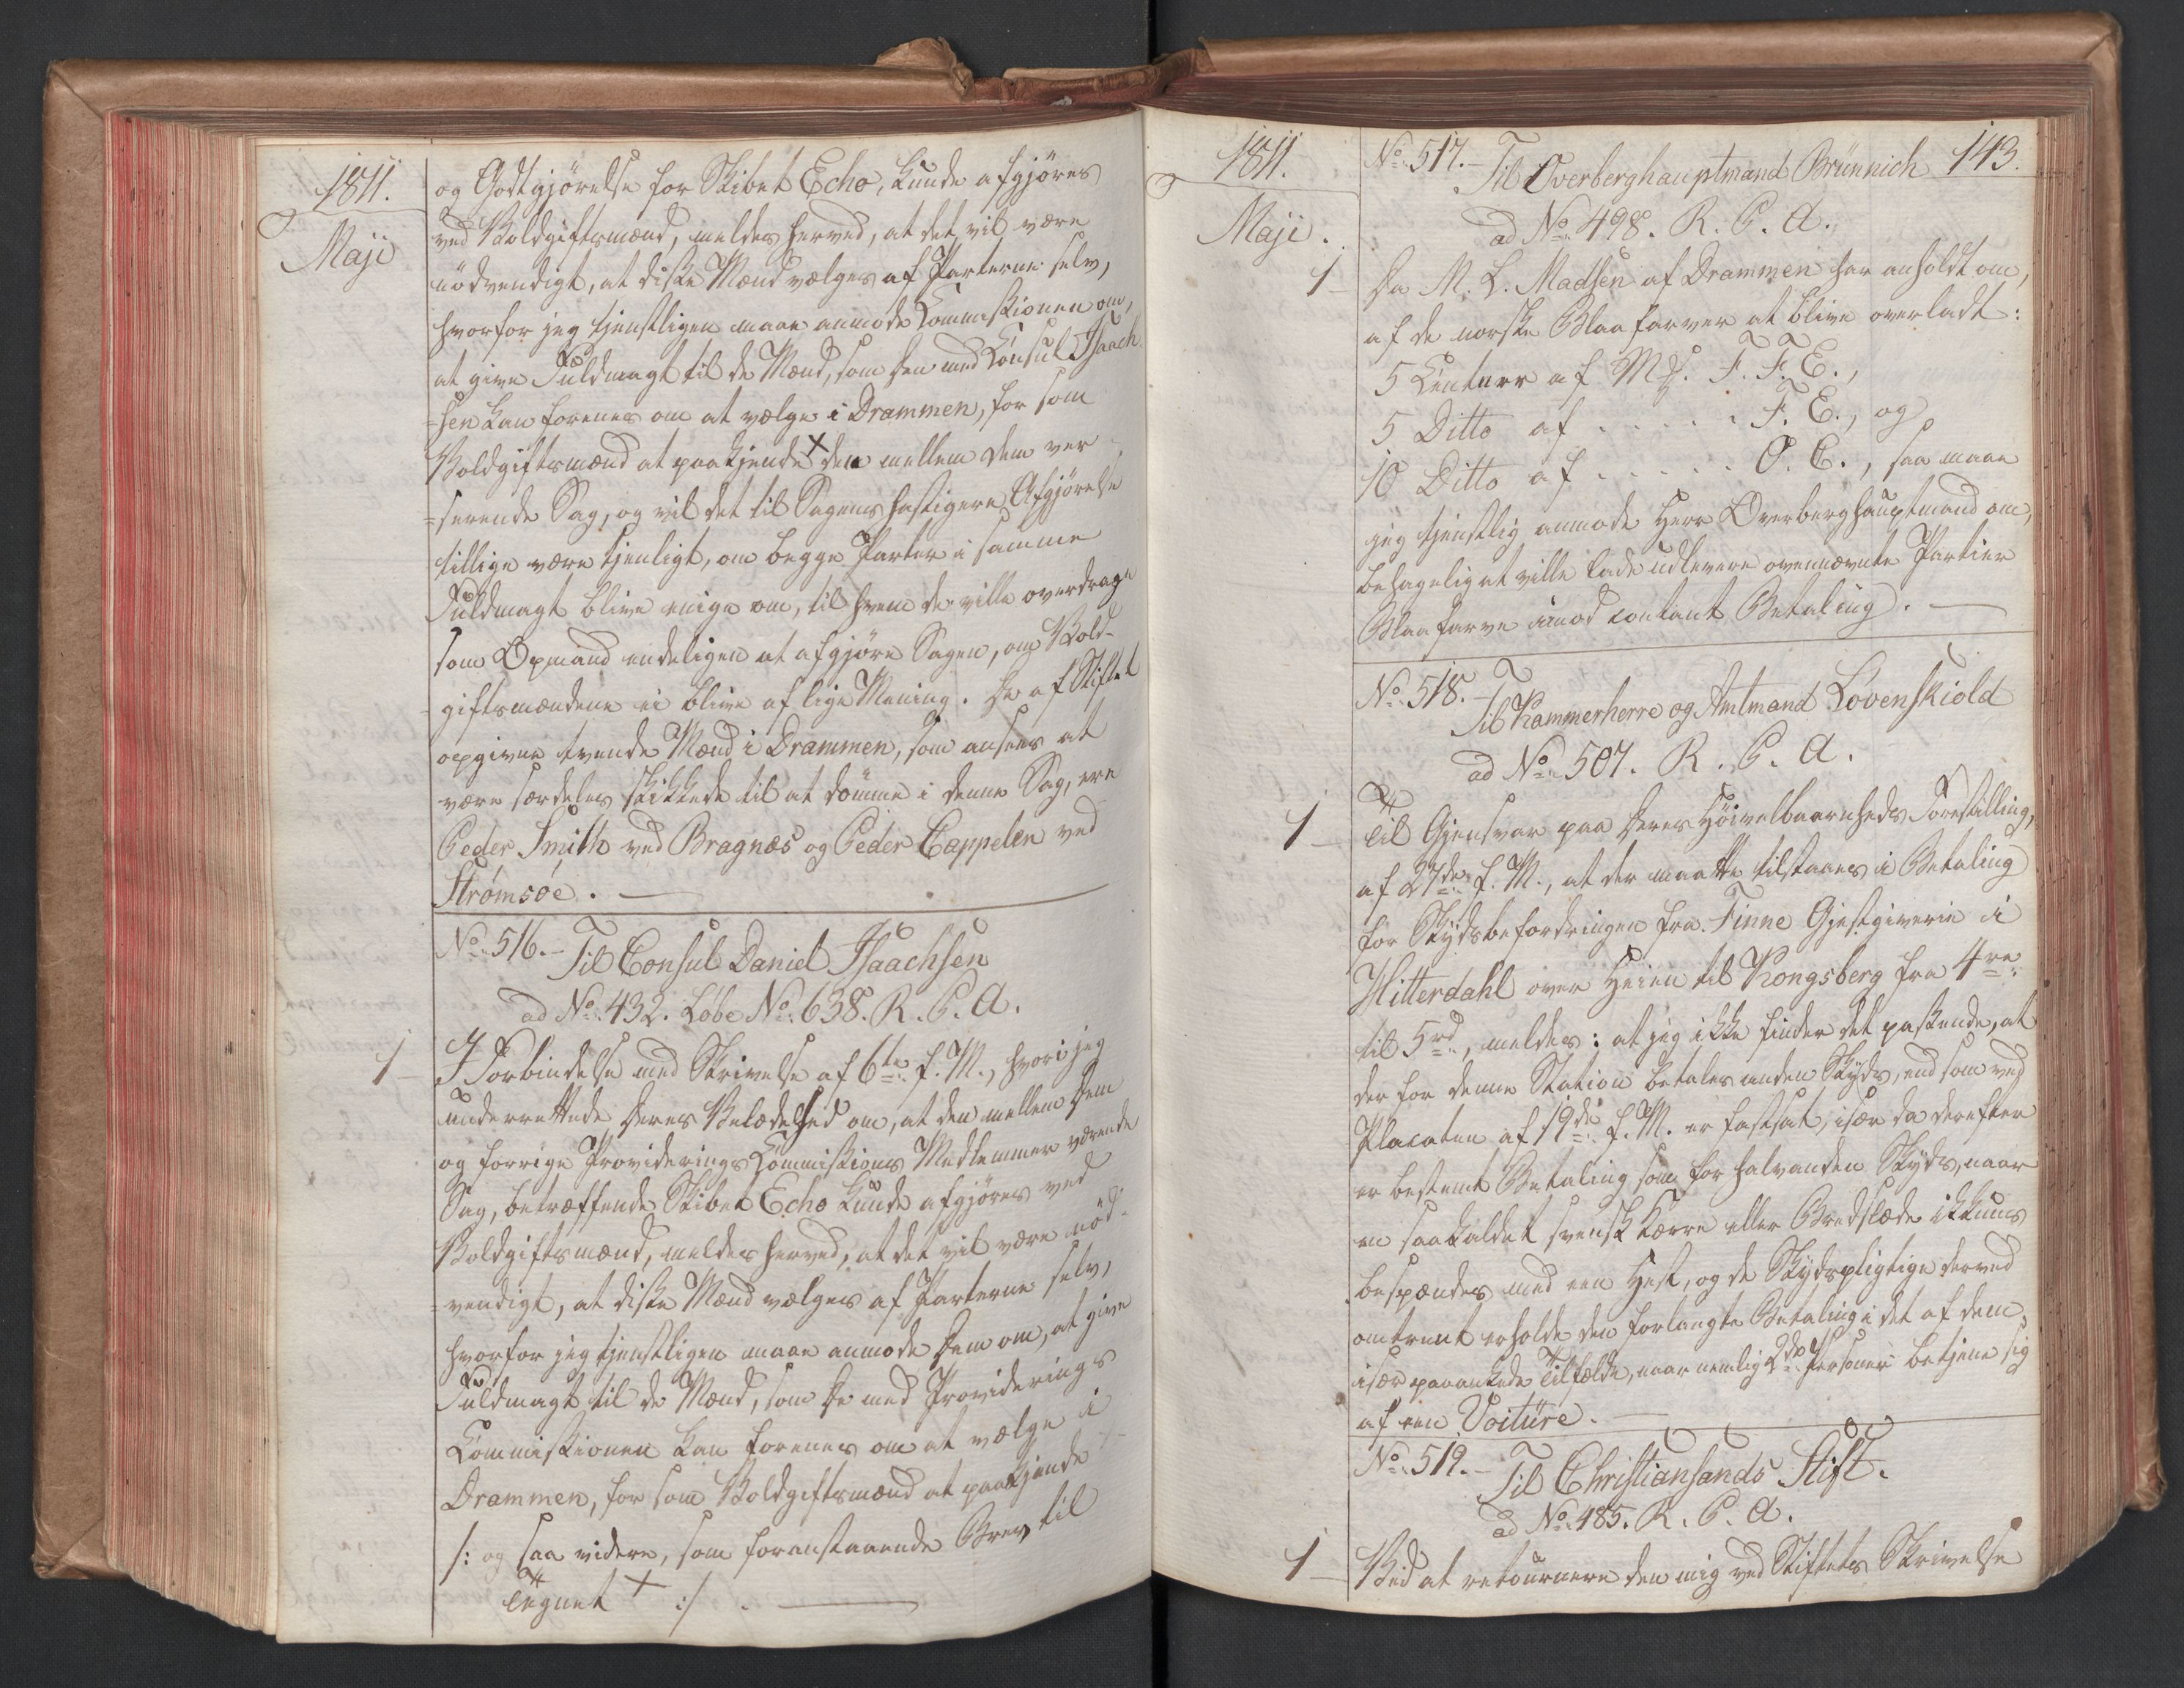 1811.
Maji
og Godtgjörelse for Skibet Echo, kunde afgjöres
ved Voldgiftsmænd, meldes herved, at det vil være
nödvendigt, at diske Mænd vælges af Parterne selv,
hvorfor jeg tjenstligen maae anmode Commissionen om,
at give Fuldmagt til de Mænd, som den med Consul Isaach
=sen kan forenes om at vælge i Drammen, for som
Voldgiftsmænd at paakjende + den mellem dem ver
=serende Sag, og vil det til Sagens hastigere Afgjörelse
tillige være tjenligt, om begge Parter i samme
Fuldmagt blive enige om, til hvem de ville overdrage
som Opmand endeligen at afgjöre Sagen, om Vold-
giftsmændene ei blive af lige Mening. De af Stiftet
opgivne tvende Mænd i Drammen, som ansees at
være særdeles skikkede til at dömme i denne Sag, ere
Peder Smith ved Bragnæs og Peder Cappelen ved
Strømsøe.
No. 516. Til Consul Daniel Isaachsen
ad No. 432. Løbe No. 638. R. P. A.
1 I Forbindelse med Skrivelse af 6te f. M., hvori jeg
underrettede Deres Velædelhed om, at den mellem Dem
og forrige Providerings Commissions Medlemmer værende
Sag, betræffende Skibet Echo kunde afgjöres ved
Voldgiftsmænd, meldes herved, at det vil være nöd-
=vendigt, at diske Mænd vælges af Parterne selv,
hvorfor jeg tjenstligen maae anmode Dem om, at give
Fuldmagt til de Mænd, som De med Providerings
Commissionen kan forenes om at vælge i
Drammen, for som Voldgiftsmænd at paakjende
/: og saa videre, som foranstaaende Brev til
Tegnet + :/.
1811.
Maji.
143.
No. 517. Til Overberghauptmand Brünnich
ad No. 498. R. P. A.
1 Da M. L. Madsen af Drammen har anholdt om,
af de norske Blaafarver at blive overladt:
5 Centner af M. F. F. E.,
5 Ditto af . . . . . F. E., og
10 Ditto af . . . . . O. E., saa maae
jeg tjenstlig anmode Herr Overberghauptmand om,
behagelig at ville lade udlevere ovennævnte Partier
Blaafarve imod contant Betaling.
No. 518. Til Kammerherre og Amtmand Lövenskiold
ad No. 507. R. P. A.
1 Til Gjensvar paa Deres Höivelbaarenheds Forestilling,
af 27de f. M., at der maatte tilstaaes i Betaling
for Skydsbefordringen fra Finne Gjestgiverie i
Hitterdahl over Heien til Kongsberg fra 4re
til 5 rd., meldes: at jeg ikke finder det passende, at
der for denne Station betales anden Skyds, end som ved
Placaten af 19de f. M. er fastsat, især da derefter
er bestemt Betaling som for halvanden Skyds, naar
en saakaldet svensk Kærre eller Bredslæde ikkuns
bespændes med een Hest, og de Skydspligtige derved
omtrent erholde den forlangte Betaling i det af dem
især paaankede Tilfælde, naar nemlig 2de Personer betjene sig
af een Voitüre.
No. 519. Til Christiansands Stift.
ad No. 485. R. P. A.
1 Ved at retournere den mig ved Stiftets Skrivelse